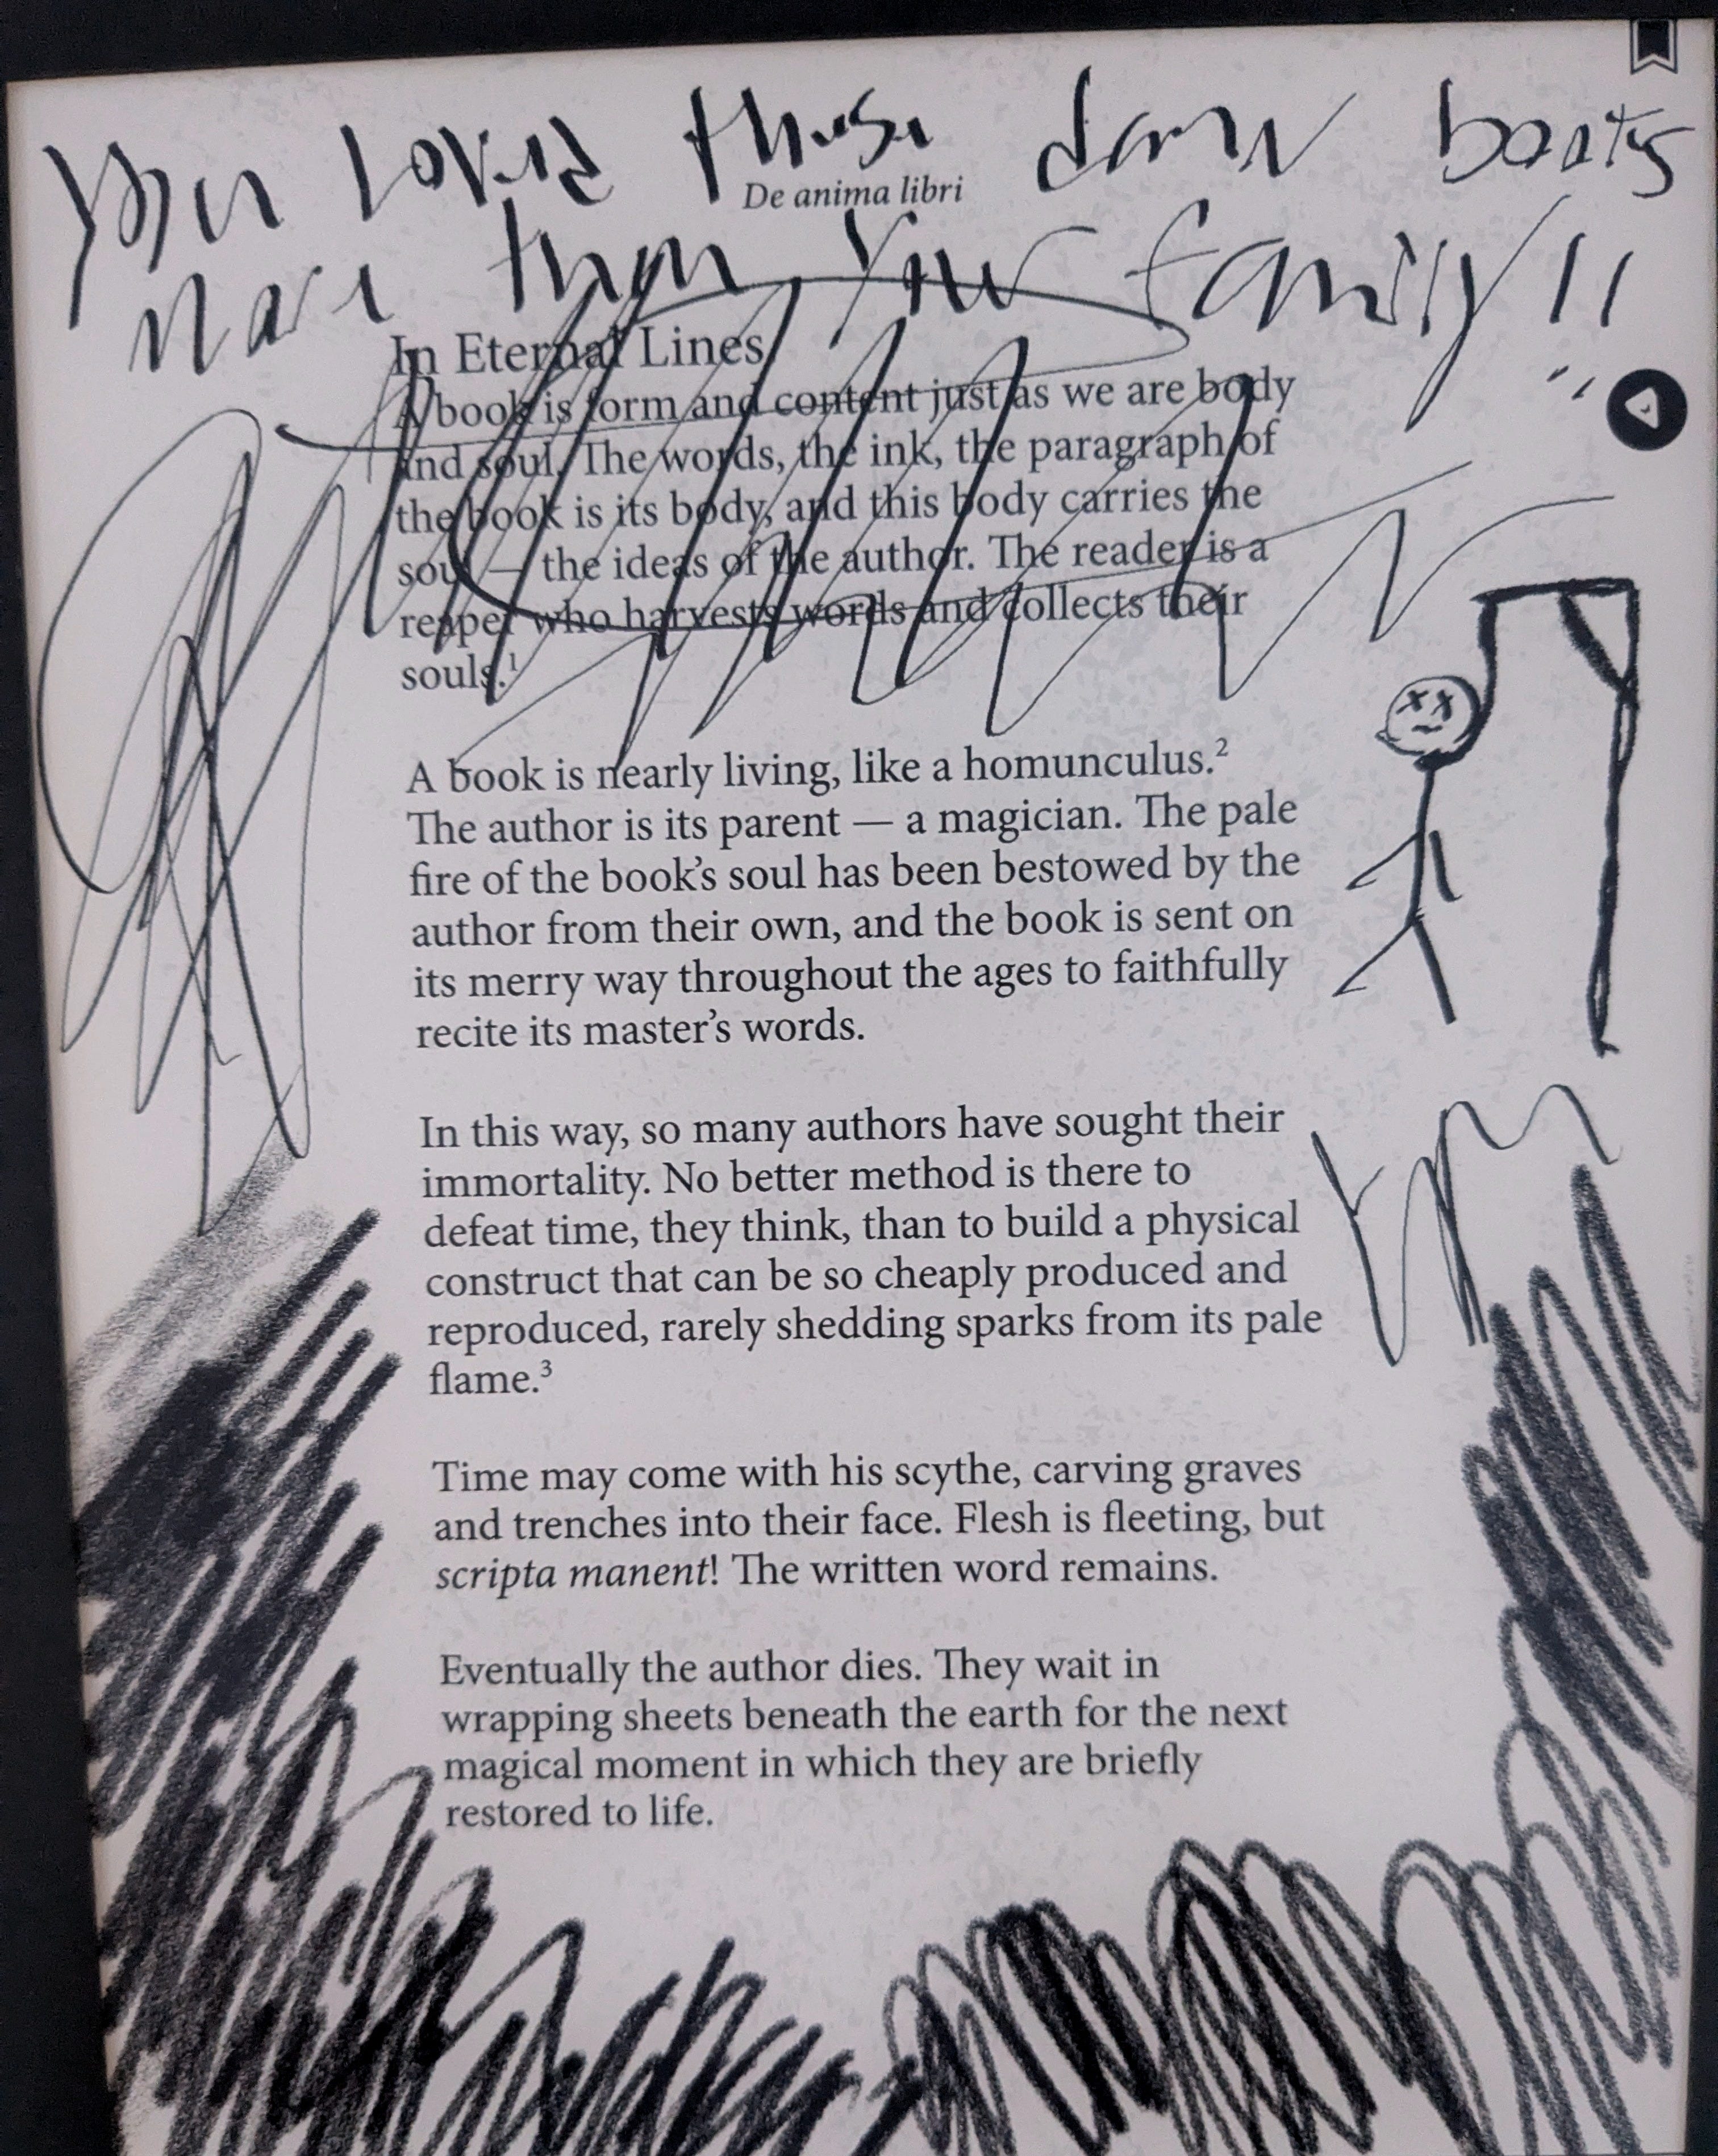 You loved those damn books
De anima libri
more than your family!!
In Eternal Lines
A book is form and content just as we are body
and soul. The words, the ink, the paragraph of
the book is its body, and this body carries the
soul — the ideas of the author. The reader is a
reaper who harvests words and collects their
souls.¹
A book is nearly living, like a homunculus.²
The author is its parent — a magician. The pale
fire of the book’s soul has been bestowed by the
author from their own, and the book is sent on
its merry way throughout the ages to faithfully
recite its master’s words.
In this way, so many authors have sought their
immortality. No better method is there to
defeat time, they think, than to build a physical
construct that can be so cheaply produced and
reproduced, rarely shedding sparks from its pale
flame.³
Time may come with his scythe, carving graves
and trenches into their face. Flesh is fleeting, but
scripta manent! The written word remains.
Eventually the author dies. They wait in
wrapping sheets beneath the earth for the next
magical moment in which they are briefly
restored to life.